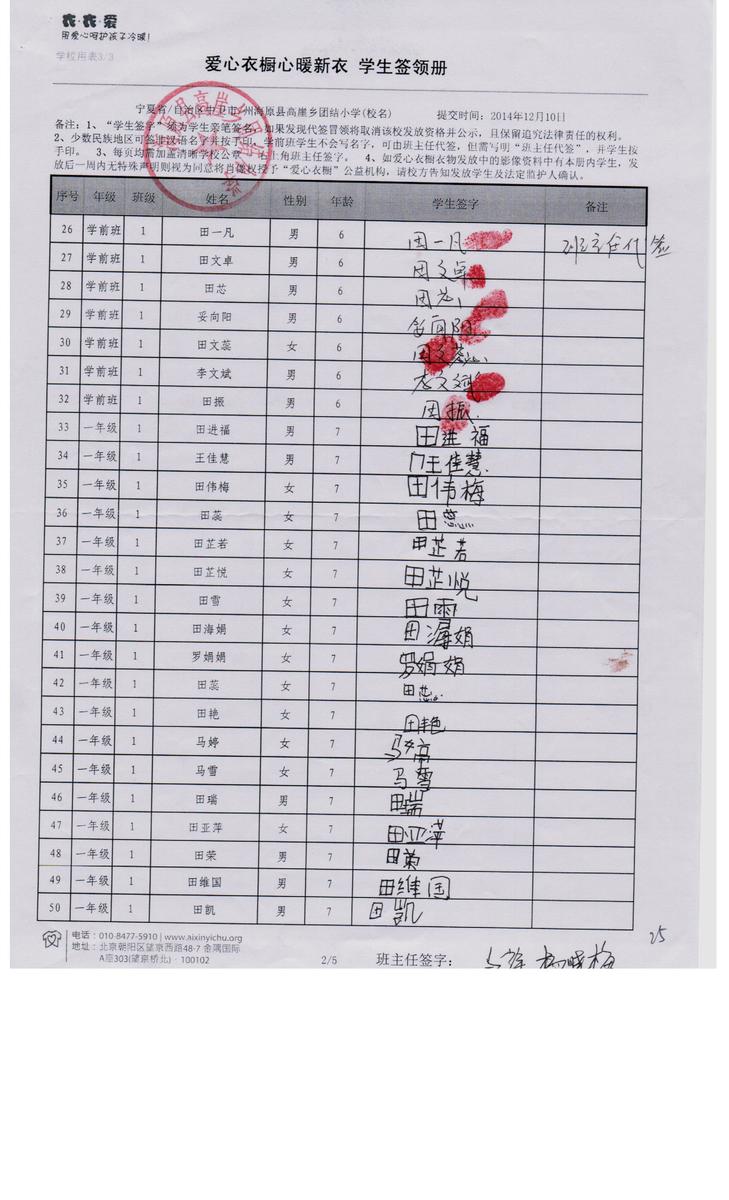 衣·衣·爱
用爱心呵护孩子冷暖!
学校用表3/3
爱心衣橱心暖新衣 学生签领册
宁夏省/自治区中卫市/州海原县高崖乡团结小学(校名) 提交时间:2014年12月10日
备注:1、“学生签字”须为学生亲笔签名,如果发现代签冒领将取消该校发放资格并公示,且保留追究法律责任的权利。
2、少数民族地区可签非汉语名字并按手印,学前班学生不会写名字,可由班主任代签,但需写明“班主任代签”,并学生按
手印。 3、每页均需加盖清晰学校公章,右上角班主任签字。 4、如爱心衣橱衣物发放中的影像资料中有本册内学生,发
放后一周内无特殊声明则视为同意将肖像权授予“爱心衣橱”公益机构,请校方告知发放学生及法定监护人确认。
序号 年级 班级 姓名 性别 年龄 学生签字 备注
26 学前班 1 田一凡 男 6 田一凡 班主任代签
27 学前班 1 田文卓 男 6 田文卓
28 学前班 1 田芯 男 6 田芯
29 学前班 1 妥向阳 男 6 妥向阳
30 学前班 1 田文蕊 女 6 田文蕊
31 学前班 1 李文斌 男 6 李文斌
32 学前班 1 田振 男 6 田振
33 一年级 1 田进福 男 7 田进福
34 一年级 1 王佳慧 男 7 王佳慧
35 一年级 1 田伟梅 女 7 田伟梅
36 一年级 1 田蕊 女 7 田蕊
37 一年级 1 田芷若 女 7 田芷若
38 一年级 1 田芷悦 女 7 田芷悦
39 一年级 1 田雪 女 7 田雨
40 一年级 1 田海娟 女 7 田海娟
41 一年级 1 罗娟娟 女 7 罗娟娟
42 一年级 1 田蕊 女 7 田蕊
43 一年级 1 田艳 女 7 田艳
44 一年级 1 马婷 女 7 马婷
45 一年级 1 马雪 女 7 马雪
46 一年级 1 田瑞 男 7 田瑞
47 一年级 1 田亚萍 女 7 田亚萍
48 一年级 1 田荣 男 7 田荣
49 一年级 1 田维国 男 7 田维国
50 一年级 1 田凯 男 7 田凯
25
电话:010-8477-5910 | www.aixinyichu.org
地址:北京朝阳区望京西路48-7 金隅国际
A座303(望京桥北)· 100102
2/5 班主任签字: 杨晓梅